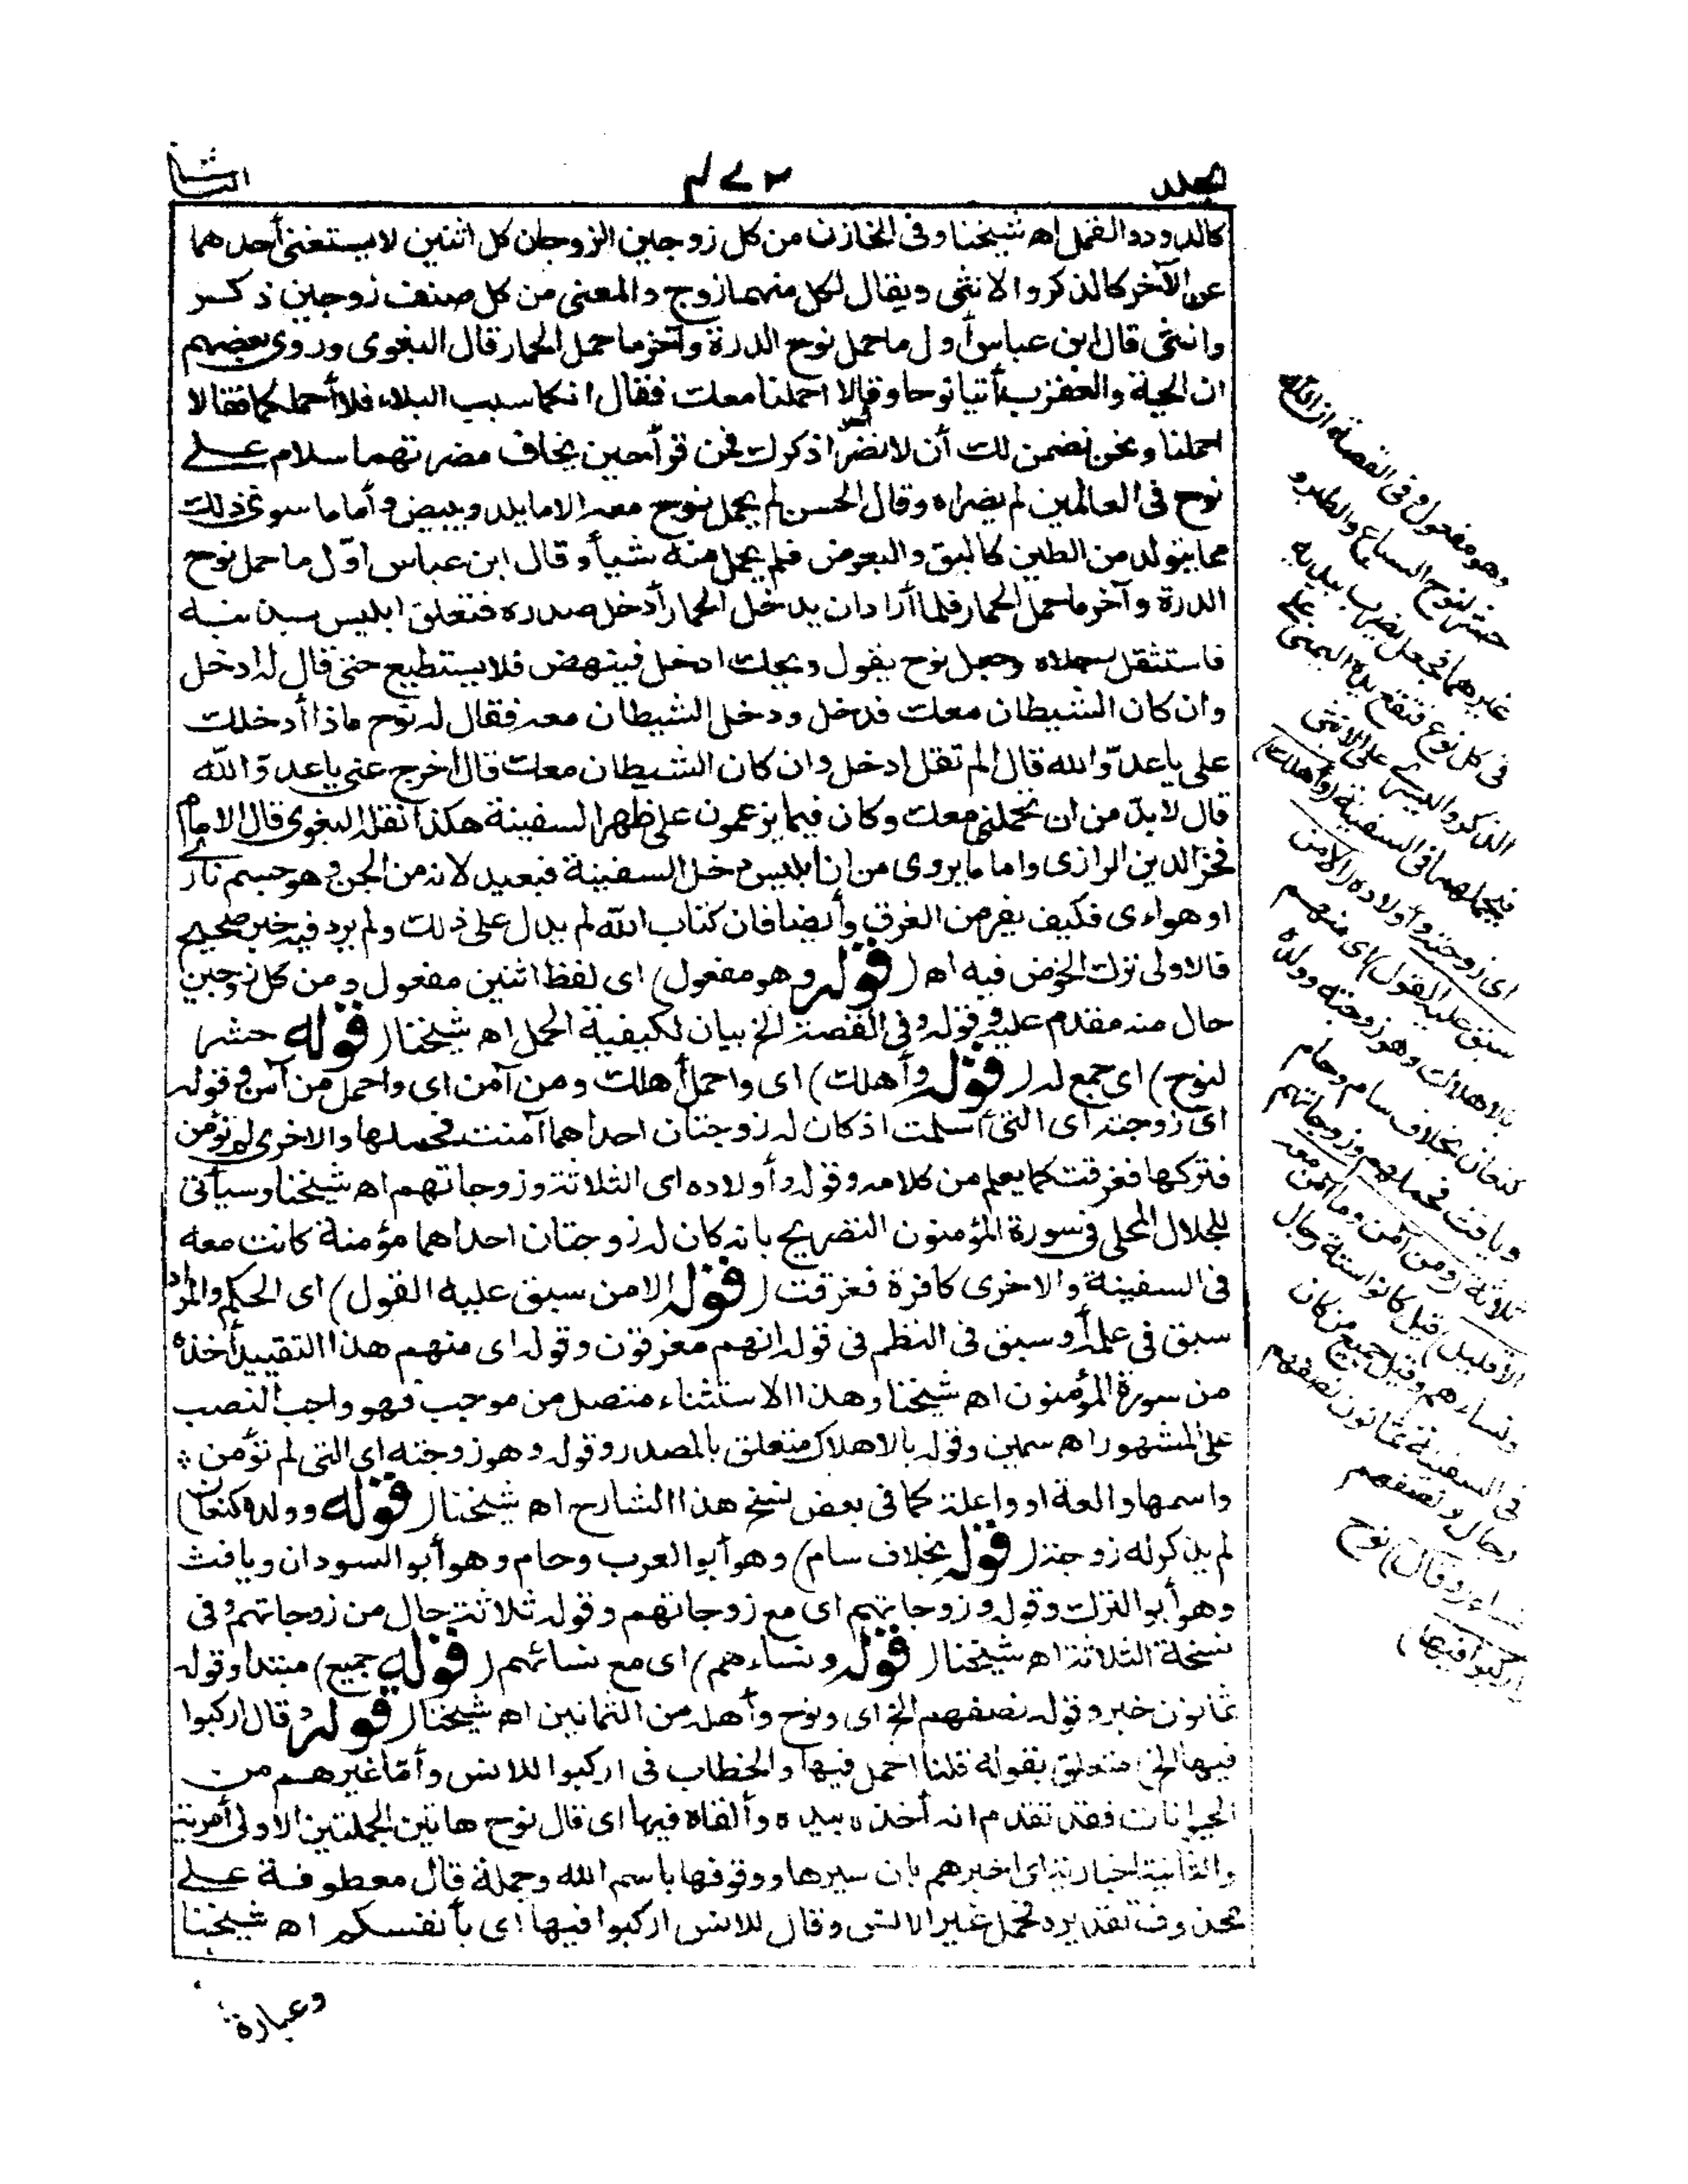 مجلد
٤٧٢
الثانى
كالدود والقمل اه شيخنا وفى الخازن من كل زوجين الزوجان كل اثنين لا يستغنى أحدهما
عن الآخر كالذكر والانثى ويقال لكل منهما زوج والمعنى من كل صنف زوجين ذكر
وانثى قال ابن عباس أول ما حمل نوح الدرة وآخر ما حمل الحمار قال البغوى وروى بعضهم
ان الحية والعقرب أتيا نوحا وقالا احملنا معك فقال انكما سبب البلاء فلا أحملكما فقالا
احملنا ونحن نضمن لك أن لا نضر أحدا ذكرك فمن قرأ حين يخاف مضرتهما سلام على
نوح فى العالمين لم يضراه وقال الحسن لم يحمل نوح معه الا ما يلد ويبيض وأما ما سوى ذلك
مما يتولد من الطين كالبق والبعوض فلم يحمل منه شيأ وقال ابن عباس أوّل ما حمل نوح
الدرة وآخر ما حمل الحمار فلما أراد ان يدخل الحمار أدخل صدره فتعلق ابليس بذنبه
فاستثقل رجلاه وجعل نوح يقول ويحك ادخل فينهض فلا يستطيع حتى قال له ادخل
وان كان الشيطان معك فدخل ودخل الشيطان معه فقال له نوح ماذا أدخلك
على يا عدوّ الله قال الم تقل ادخل وان كان الشيطان معك قال اخرج عنى يا عدوّ الله
قال لا بدّ من ان تحملنى معك وكان فيما يزعمون على ظهر السفينة هكذا نقله البغوى قال الامام
فخر الدين الرازى واما ما يروى من ان ابليس دخل السفينة فبعيد لانه من الجن وهو جسم نارى
او هواءى فكيف يفر من الغرق وأيضا فان كتاب الله لم يدل على ذلك ولم يرد فيه خبر صحيح
فالاولى ترك الخوض فيه اه (قوله وهو مفعول) اى لفظ اثنين مفعول ومن كل زوجين
حال منه مقدم عليه وقوله وفى القصة الخ بيان لكيفية الحمل اه شيخنا (قوله حشر
لنوح) اى جمع له (قوله وأهلك) اى واحمل أهلك ومن آمن اى واحمل من آمن وقوله
اى زوجته اى التى أسلمت اذ كان له زوجتان احداهما آمنت فحملها والاخرى لم تؤمن
فتركها فغرقت كما يعلم من كلامه وقوله وأولاده اى الثلاثة وزوجاتهم اه شيخنا وسيأتى
للجلال المحلى فى سورة المؤمنون التصريح بانه كان له زوجتان احداهما مؤمنة كانت معه
فى السفينة والاخرى كافرة فغرقت (قوله الا من سبق عليه القول) اى الحكم والمراد
سبق فى علمه أو سبق فى النظم فى قوله انهم مغرقون وقوله اى منهم هذا التقييد أخذه
من سورة المؤمنون اه شيخنا وهذا الاستثناء متصل من موجب فهو واجب النصب
على المشهور اه سمين وقوله بالاهلاك متعلق بالمصدر وقوله وهو زوجته اى التى لم تؤمن
واسمها والعة او واعلة كما فى بعض نسخ هذا الشارح اه شيخنا (قوله وولده كنعان)
لم يذكر له زوجة (قوله بخلاف سام) وهو أبو العرب وحام وهو أبو السودان ويافث
وهو أبو الترك وقوله وزوجاتهم اى مع زوجاتهم وقوله ثلاثة حال من زوجاتهم وفى
نسخة الثلاثة اه شيخنا (قوله ونساءهم) اى مع نسائهم (قوله جميع) مبتدا وقوله
ثمانون خبر وقوله نصفهم الخ اى ونوح وأهله من الثمانين اه شيخنا (قوله وقال اركبوا
فيها الخ) متعلق بقوله قلنا احمل فيها والخطاب فى اركبوا للانس وأمّا غيرهم من
الحيوانات فقد تقدم انه أخذه بيده وألقاه فيها اى قال نوح هاتين الجملتين الاولى أمرية
والثانية اخبارية اى اخبرهم بان سيرها ووقوفها باسم الله وجملة قال معطوفة على
محذوف تقديره فحمل غير الانس وقال للانس اركبوا فيها اى بأنفسكم اه شيخنا
وعبارة
وهو مفعول وفى القصة ان الله
حشر لنوح السباع والطير و
غيرهما فجعل يضرب بيديه
فى كل نوع فتقع يده اليمنى على
الذكر واليسرى على الانثى
فيحملهما فى السفينة (وأهلك)
اى زوجته وأولاده (الا من
سبق عليه القول) اى منهم
بالاهلاك وهو زوجته وولده
كنعان بخلاف سام وحام
ويافث فحملهم وزوجاتهم
ثلاثة (ومن آمن وما آمن معه
الا قليل) قيل كانوا ستة رجال
ونساءهم وقيل جميع من كان
فى السفينة ثمانون نصفهم
رجال ونصفهم
نساء (وقال) نوح
(اركبوا فيها)